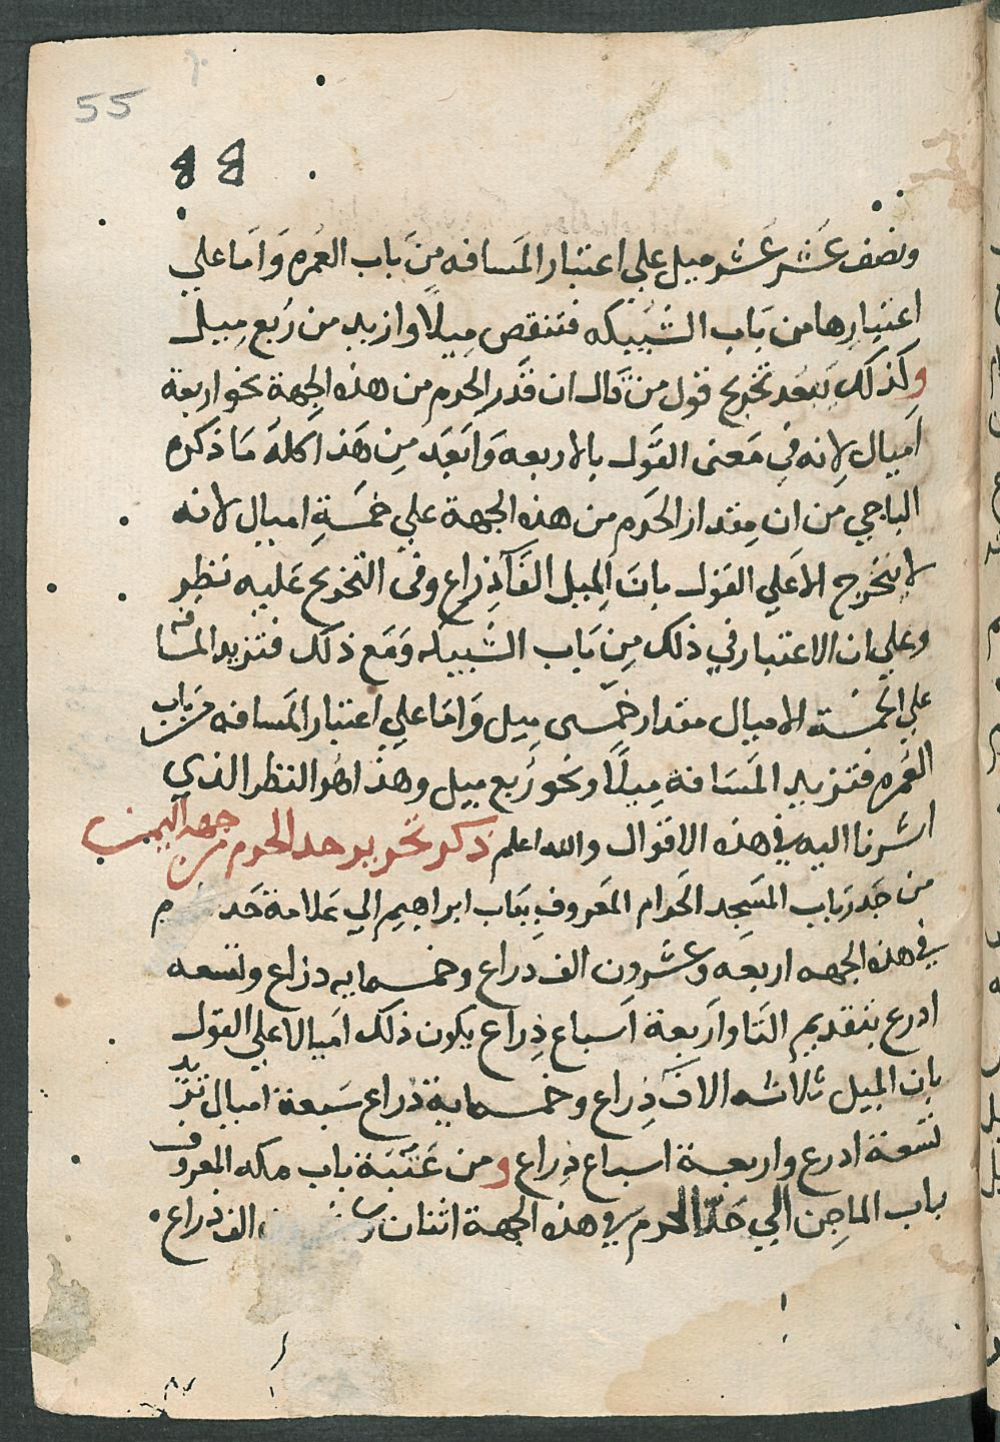 55
88
ونصف عُشر عُشر ميل علي اعتبار المسافه من باب العُمره وَامَا علي
اعتبارها من بَاب الشُبَيكه فتنقص مِيلًا وازيد من رُبع مِيل
وكذلك يَبعُد تخريج قول من قال ان قدر الحرم من هذه الجهة نحو اربعة
اميال لانه في مَعنى القول بالاربعه وَابَعَد مِن هَذا كلهُ مَا ذكره
الباجي مَن ان مقدار الحَرم من هذه الجهة علي خمسَةِ اميال لانه
لا يتخرج الا علي القول بان الميل الفا ذِراع وفى التخريج عَليه نظر
وعلي ان الاعتبار في ذلك مِن بَاب الشبيكه وَمَع ذلك فتزيد المسافه
علي الخمسَة الاميال مقدار خُمسى مِيل وَامَا علي اعتبار المَسافه من باب
العُمره فتزيد المَسَافة مِيلًا ونحو رُبع ميل وهذا هُو النظر الذي
اشرنا اليه في هذه الاقوال والله اعلم ذكر تحرير حد الحرم من جهة اليمن
من جَدر باب المسَجِد الحَرام المَعروفِ ببَاب ابراهيم الي عَلامة حَد م
في هذه الجهه اربعه وعشرون الف ذراع وخمسمايه ذراع وتسعه
اذرع بتقديم التَا وارَبعة اَسباع ذِراع يكون ذلك اميالا علي القول
بان الميل ثلاثه الاف ذِراع وخمسماية ذراع سَبعة اميال تزيد
تسَعة اذرع واربعة اسباع ذِراع ومن عَتَبَة باب مكه المعروف
بباب الماجِن الي حَدّ الحرم في هذه الجهة اثنان الف ذراع